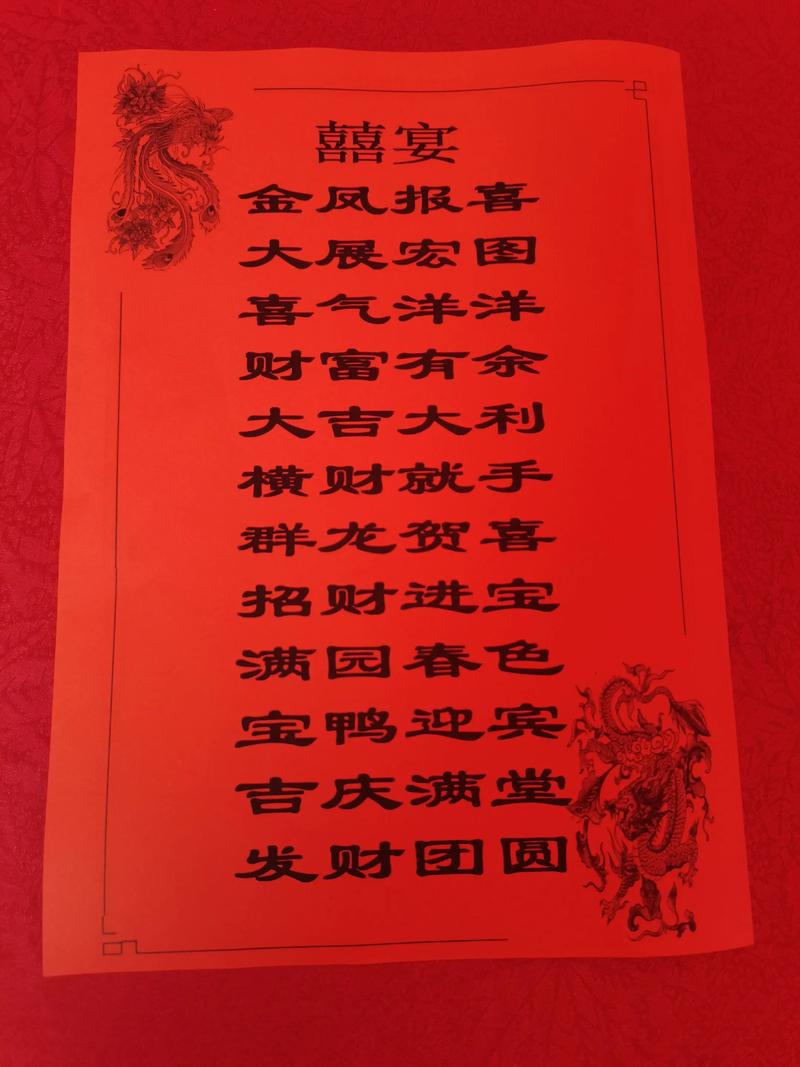 囍宴
金凤报喜
大展宏图
喜气洋洋
财富有余
大吉大利
横财就手
群龙贺喜
招财进宝
满园春色
宝鸭迎宾
吉庆满堂
发财团圆